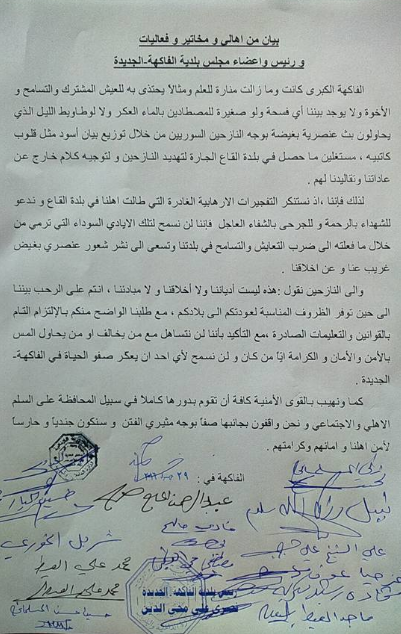 بيان من اهالي و مخاتير و فعاليات
و رئيس واعضاء مجلس بلدية الفاكهة-الجديدة
الفاكهة الكبرى كانت وما زالت منارة للعلم ومثالا يحتذى به للعيش المشترك والتسامح و
الأخوة ولا يوجد بيننا أي فسحة ولو صغيرة للمصطادين بالماء العكر ولا لوطاويط الليل الذي
يحاولون بث عنصرية بغيضة بوجه النازحين السوريين من خلال توزيع بيان أسود مثل قلوب
كاتبيه ، مستغلين ما حصل في بلدة القاع الجارة لتهديد النازحين و لتوجيه كلام خارج عن
عاداتنا وتقاليدنا لهم .
لذلك فإننا ،اذ نستنكر التفجيرات الارهابية الغادرة التي طالت اهلنا في بلدة القاع و ندعو
للشهداء بالرحمة و للجرحى بالشفاء العاجل فإننا لن نسمح لتلك الايادي السوداء التي ترمي من
خلال ما فعلته الى ضرب التعايش والتسامح في بلدتنا وتسعى الى نشر شعور عنصري بغيض
غريب عنا و عن اخلاقنا .
والى النازحين نقول :هذه ليست أدياننا ولا أخلاقنا و لا مبادئنا ، انتم على الرحب بيننا
الى حين توفر الظروف المناسبة لعودتكم الى بلادكم ، مع طلبنا الواضح منكم بالإلتزام التام
بالقوانين والتعليمات الصادرة ،مع التأكيد بأننا لن نتساهل مع من يخالف او من يحاول المس
بالأمن والأمان و الكرامة ايًا من كان و لن نسمح لأي احد ان يعكر صفو الحياة في الفاكهة-
الجديدة .
كما ونهيب بالقوى الأمنية كافة أن تقوم بدورها كاملا في سبيل المحافظة على السلم
الاهلي والاجتماعي و نحن واقفون بجانبها صفاً بوجه مثيري الفتن و سنكون جندياً و حارساً
لأمن اهلنا و امانهم وكرامتهم .
الفاكهة في : ٢٩
شربل الخوري
محمد علي
رئيس بلدية الفاكهة الجديدة
محي الدين